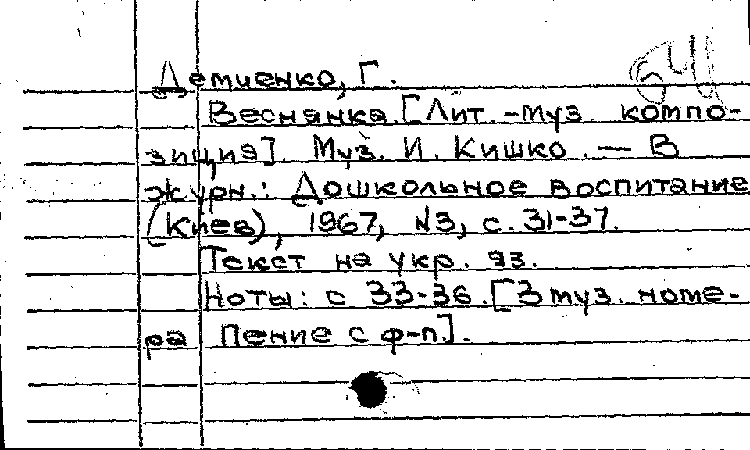 Демиенко, Г.
Веснянка. [Лит.-муз. компо-
зиция]. Муз. И. Кишко. — В
журн.: Дошкольное воспитание
(Киев), 1967, №3, с. 31-37.
Текст на укр. яз.
Ноты: с 33-36. [3 муз. номе-
ра пение с ф-п].